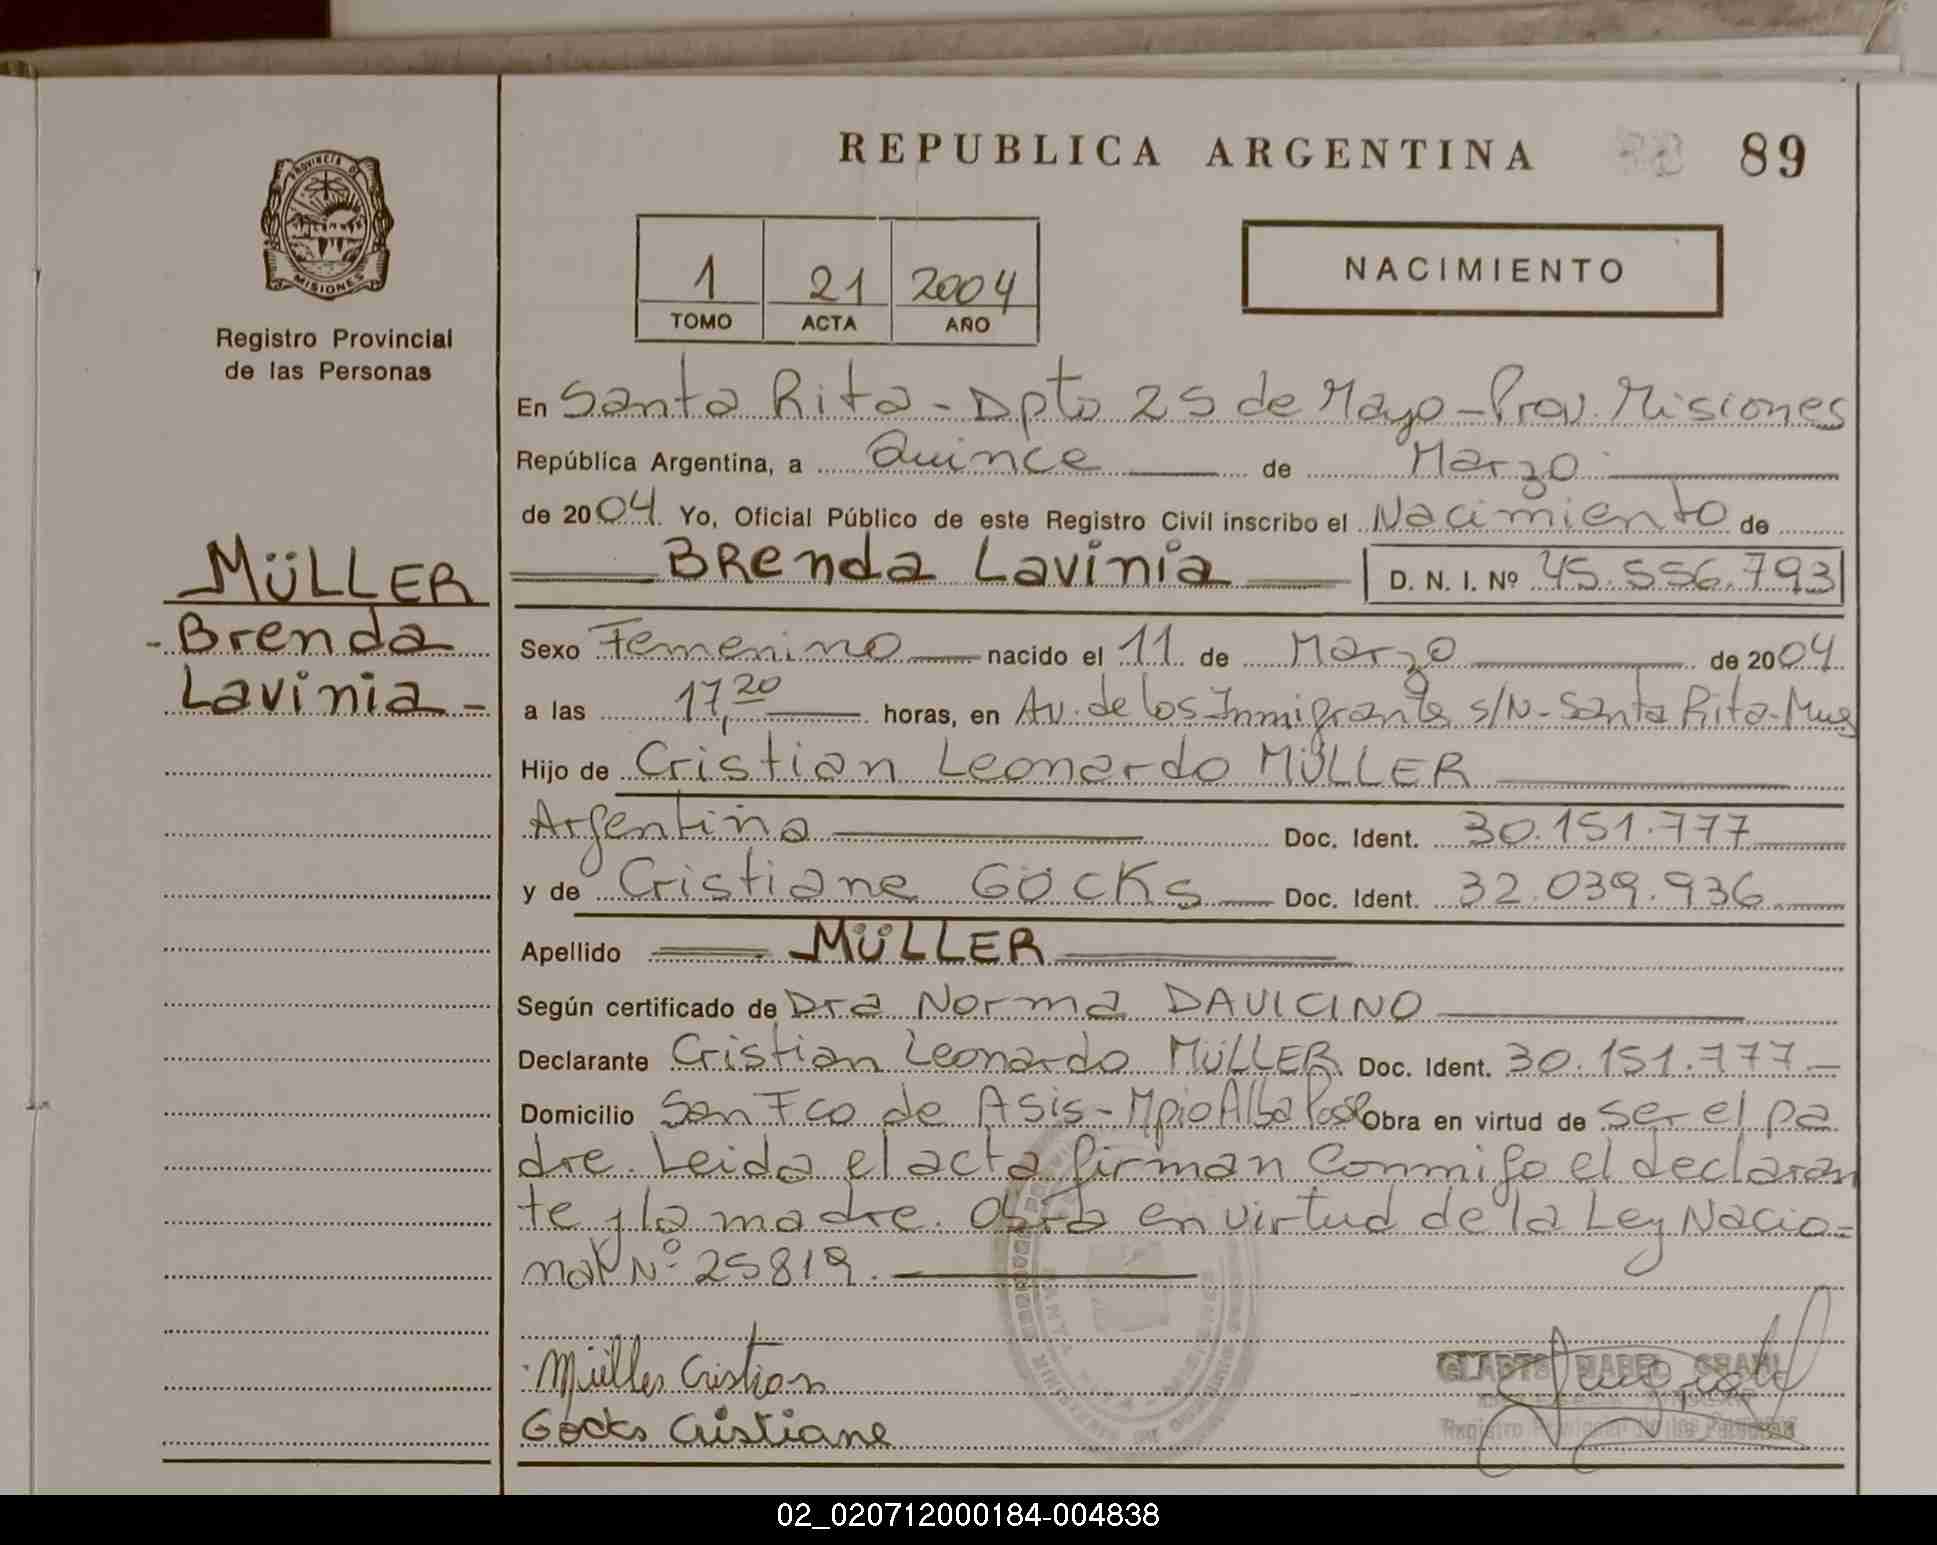 REPUBLICA ARGENTINA
89
PROVINCIA DE
MISIONES
Registro Provincial
de las Personas
1 21 2004
TOMO ACTA AÑO
NACIMIENTO
En Santa Rita - Dpto 25 de Mayo - Prov. Misiones
República Argentina, a Quince de Marzo
de 2004. Yo, Oficial Público de este Registro Civil inscribo el Nacimiento de
BRenda Lavinia D. N. I. Nº 45.556.793
MÜLLER
- Brenda
Lavinia -
Sexo Femenino nacido el 11 de Marzo de 2004
a las 17,20 horas, en Av. de los Inmigrantes s/N - Santa Rita -
Hijo de Cristian Leonardo MÜLLER
Argentina Doc. Ident. 30.151.777
y de Cristiane GÖCKs Doc. Ident. 32.039.936
Apellido MÜLLER
Según certificado de Dra Norma DAVICINO
Declarante Cristian Leonardo MÜLLER Doc. Ident. 30.151.777 -
Domicilio San Fco de Asis - Mpio Alba Posse Obra en virtud de ser el pa
dre. Leida el acta firman conmigo el declaran
te y la madre. Obra en virtud de la Ley Nacio-
nal Nº 25819.
Müller Cristian
Göcks Cristiane
GLADYS MABEL
Registro Provincial de las Personas
02_020712000184-004838